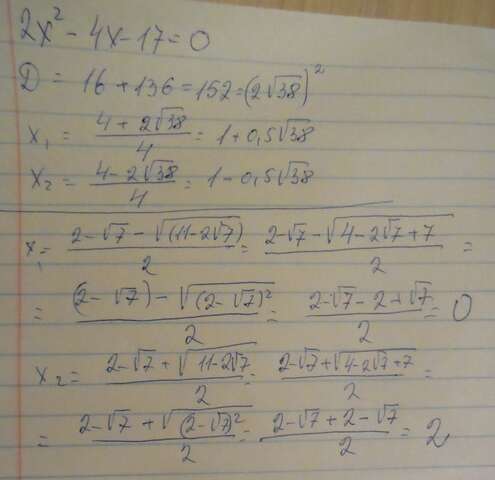 2x² - 4x - 17 = 0
D = 16 + 136 = 152 = (2√38)²
x₁ = (4 + 2√38)/4 = 1 + 0,5√38
x₂ = (4 - 2√38)/4 = 1 - 0,5√38
x₁ = (2 - √7 - √(11 - 2√7))/2 = (2 - √7 - √(4 - 2√7 + 7))/2 =
= ((2 - √7) - √((2 - √7)²))/2 = (2 - √7 - 2 + √7)/2 = 0
x₂ = (2 - √7 + √(11 - 2√7))/2 = (2 - √7 + √(4 - 2√7 + 7))/2 =
= (2 - √7 + √((2 - √7)²))/2 = (2 - √7 + 2 - √7)/2 = 2